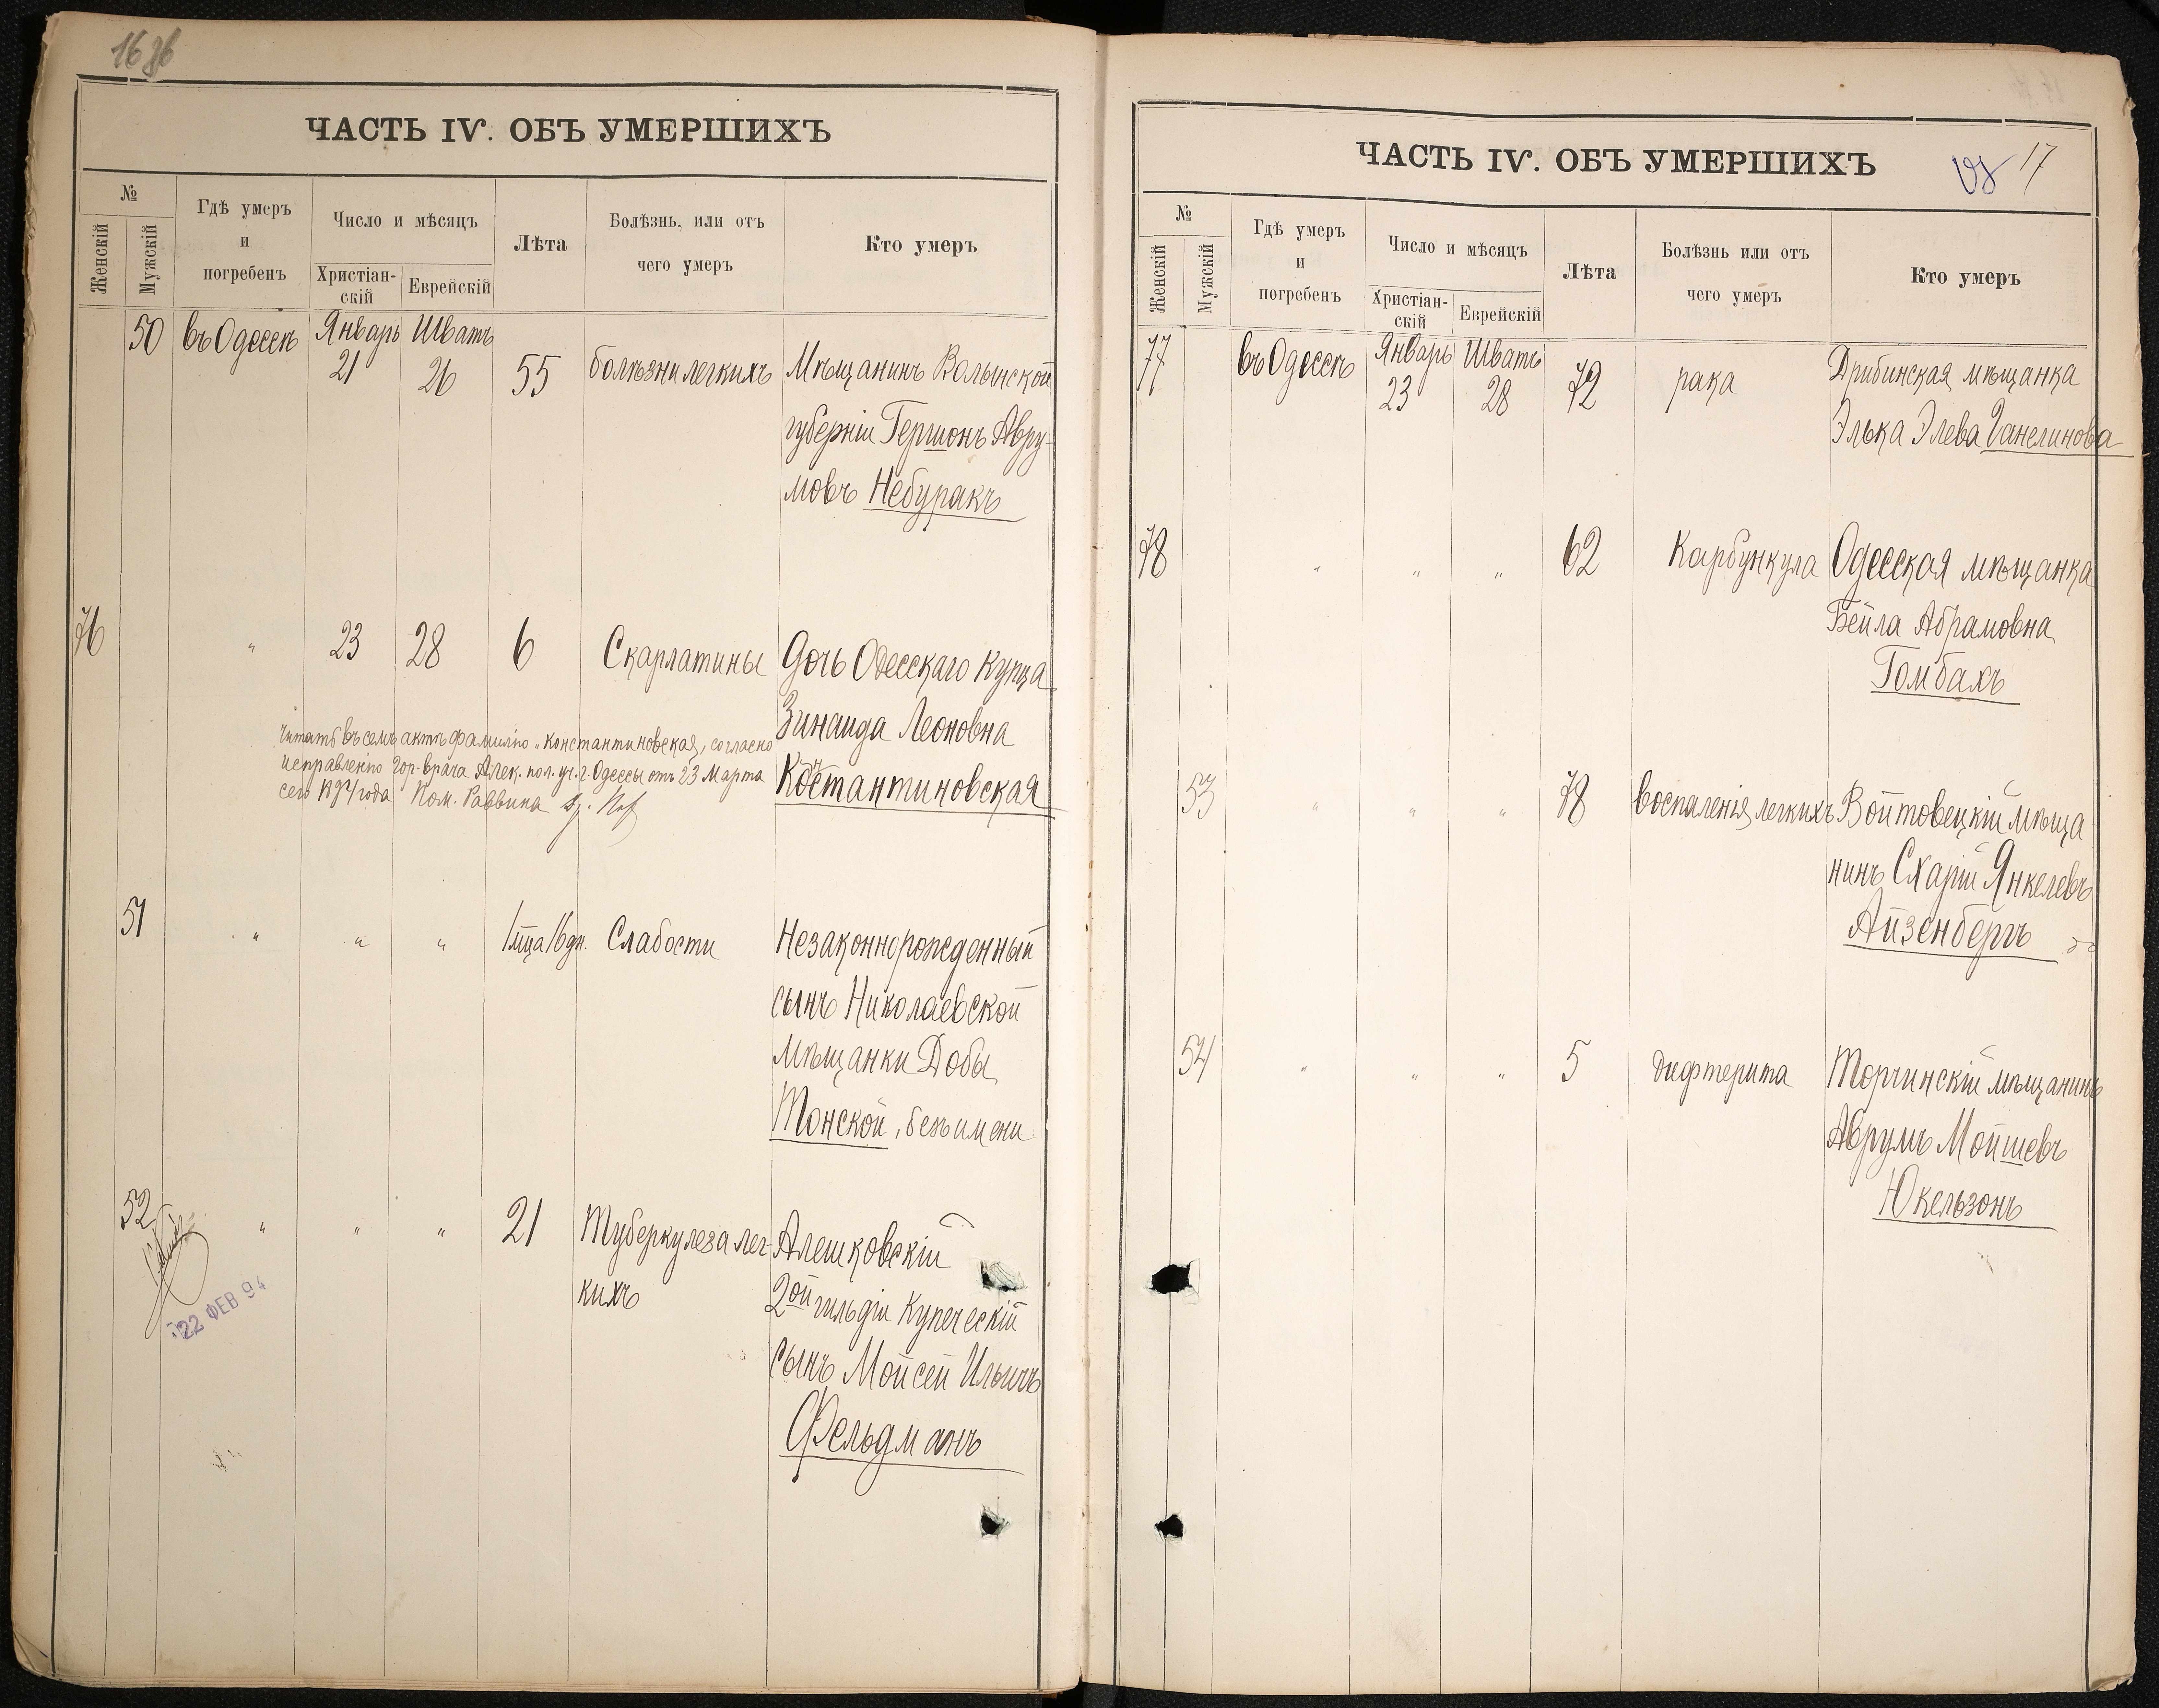 ЧАСТЬ IV. ОБЪ УМЕРШИХЪ
№
Женскій
Мужскій
Гдѣ умеръ
и
погребенъ
Число и мѣсяцъ
Христіан-
скій
Еврейскій
Лѣта
Болѣзнь, или отъ
чего умеръ
Кто умеръ
50 въ Одессѣ Январь 21 Шватъ 26 55 болѣзни легкихъ Мѣщанинъ Волынской
губерніи Гершонъ Авру-
мовъ Небуракъ
76 " 23 28 6 Скарлатины Дочь Одесскаго Купца
Зинаида Леоновна
Костантиновская
Читать въ семъ актѣ фамилію „Константиновская, согласно
исправленію Гор. врача Алек. пол. уч. г. Одессы отъ 23 Марта
сего 1894 года Пом. Раввина
51 " " " 1 мца 16 дн. Слабости Незаконнорожденный
сынъ Николаевской
мѣщанки Добы
Тонской, безъ имени
52 " " " 21 Туберкулеза лег- Алешковскій
кихъ 2ой гильдіи Купеческій
сынъ Мойсей Ильичъ
Фельдманъ
22 ФЕВ 94
ЧАСТЬ IV. ОБЪ УМЕРШИХЪ
17
№
Женскій
Мужскій
Гдѣ умеръ
и
погребенъ
Число и мѣсяцъ
Христіан-
скій
Еврейскій
Лѣта
Болѣзнь или отъ
чего умеръ
Кто умеръ
77 въ Одессѣ Январь 23 Шватъ 28 72 рака Дрибинская мѣщанка
Элька Элева Ганелинова
78 " " " 62 Карбункула Одесская мѣщанка
Бейла Абрамовна
Гомбахъ
53 " " " 78 воспаленія легкихъ Войтовецкій мѣща
нинъ Схарій Янкелевъ
Айзенбергъ
54 " " " 5 дифтерита Торчинскій мѣщанинъ
Аврумъ Мойшевъ
Юкельзонъ